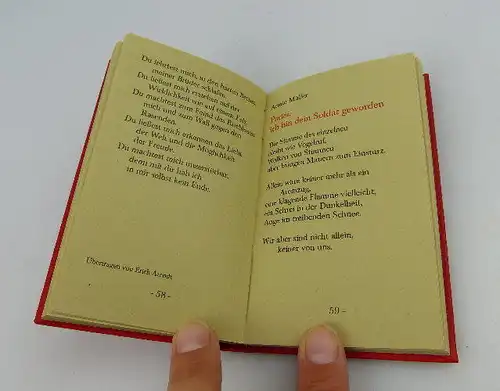 Du lehrtest mich, in den harten Betten
meiner Brüder schlafen.
Du ließest mich erstehen auf der
Wirklichkeit wie auf einem Fels.
Du machtest zum Feind des Banditen
mich und zum Wall gegen den
Rasenden.
Du ließest mich erkennen das Lichte
der Welt und die Möglichkeit
der Freude.
Du machtest mich unzerstörbar,
denn mit dir hab ich
in mir selbst kein Ende.
Übertragen von Erich Arendt
- 58 -
Armin Müller
Partei,
ich bin dein Soldat geworden
Der Stimme des einzelnen
gleicht wie Vogelruf,
Wolken von Stimmen
aber bringen Mauern zum Einsturz.
Allein wäre keiner mehr als ein
Atemzug,
eine klagende Flamme vielleicht,
ein Schrei in der Dunkelheit,
Auge im treibenden Schnee.
Wir aber sind nicht allein,
keiner von uns.
59 -